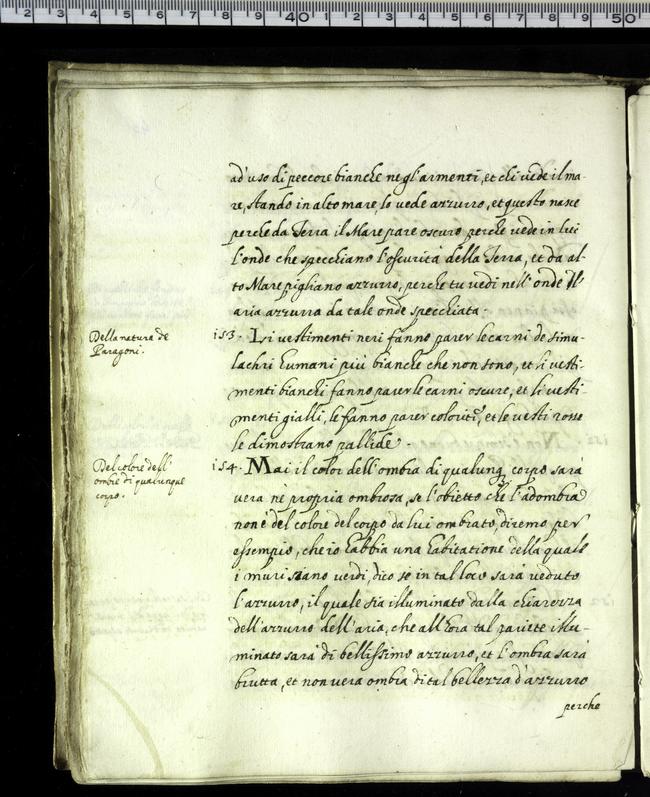 ad' uso di peccore bianche negl'armenti, et chi vede il ma-
re, stando in alto mare, lo vede azzurro, et questo nasce
perche da Terra il Mare pare oscuro perche vede in lui
l'onde che specchiano l'oscurità della Terra, et da al-
to Mare pigliano azzurro, perche tu vedi nell' onde ll'
aria azzurra da tale onde specchiata.
Della natura de
Paragoni.
153. Li vestimenti neri fanno parer le carni de simu-
lachri humani più bianche che non sono, et li vesti-
menti bianchi fanno parer le carni oscure, et li vesti-
menti gialli, le fanno parer colorite, et le vesti rosse
le dimostrano pallide.
Del colore dell'
ombre di qualunque
corpo.
154. Mai il color dell'ombra di qualunq corpo sarà
vera nè propria ombrosa, se l'obietto che l'adombra
non è del colore del corpo da lui ombrato, diremo per
essempio, che io habbia una habitatione della quale
i muri siano verdi, dico se in tal loco sarà veduto
l'azzurro, il quale sia illuminato dalla chiarezza
dell'azzurro dell'aria, che all'hora tal pariete illu-
minato sarà di bellissimo azzurro, et l'ombra sarà
brutta, et non vera ombra di tal bellezza d'azzurro
perche